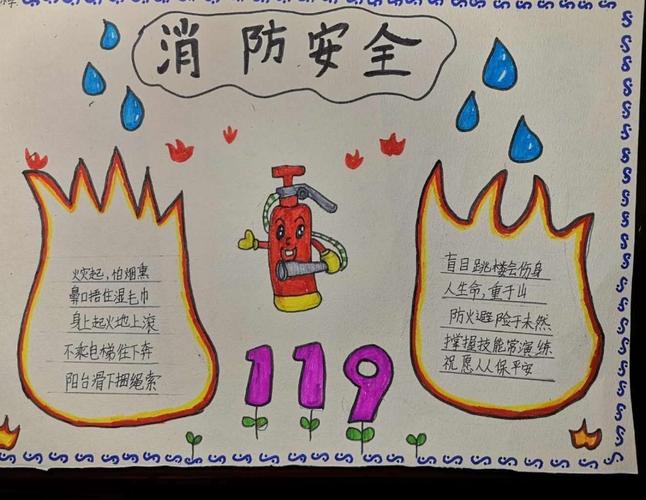 消防安全
火灾起，怕烟熏
鼻口捂住湿毛巾
身上起火地上滚
不乘电梯往下奔
阳台滑下捆绳索
盲目跳楼会伤身
人生命，重于山
防火避险于未然
掌握技能常演练
祝愿人人保平安
119